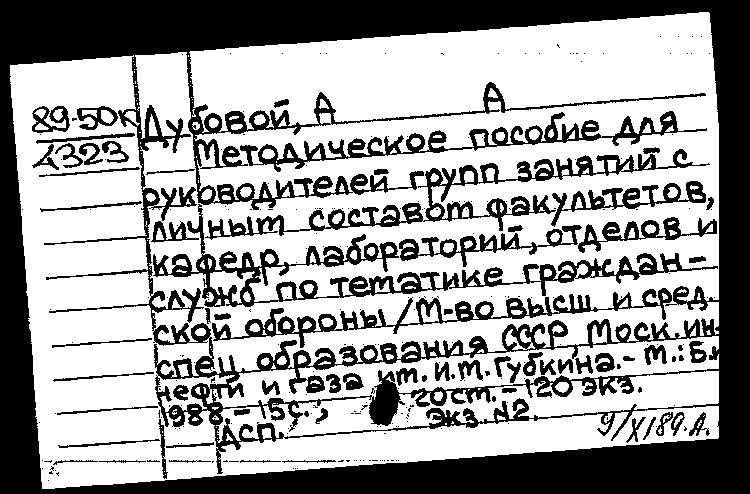 89-50к Дубовой, А А
4323 Методическое пособие для
руководителей групп занятий с
личным составом факультетов,
кафедр, лабораторий, отделов и
служб по тематике граждан-
ской обороны / М-во высш. и сред.
спец. образования СССР, Моск. ин-
нефти и газа им. И.М. Губкина. - М.: Б.и
1988. - 15 с.; 20 см. - 120 экз.
ДСП. Экз. N2.
9/XI89.А.